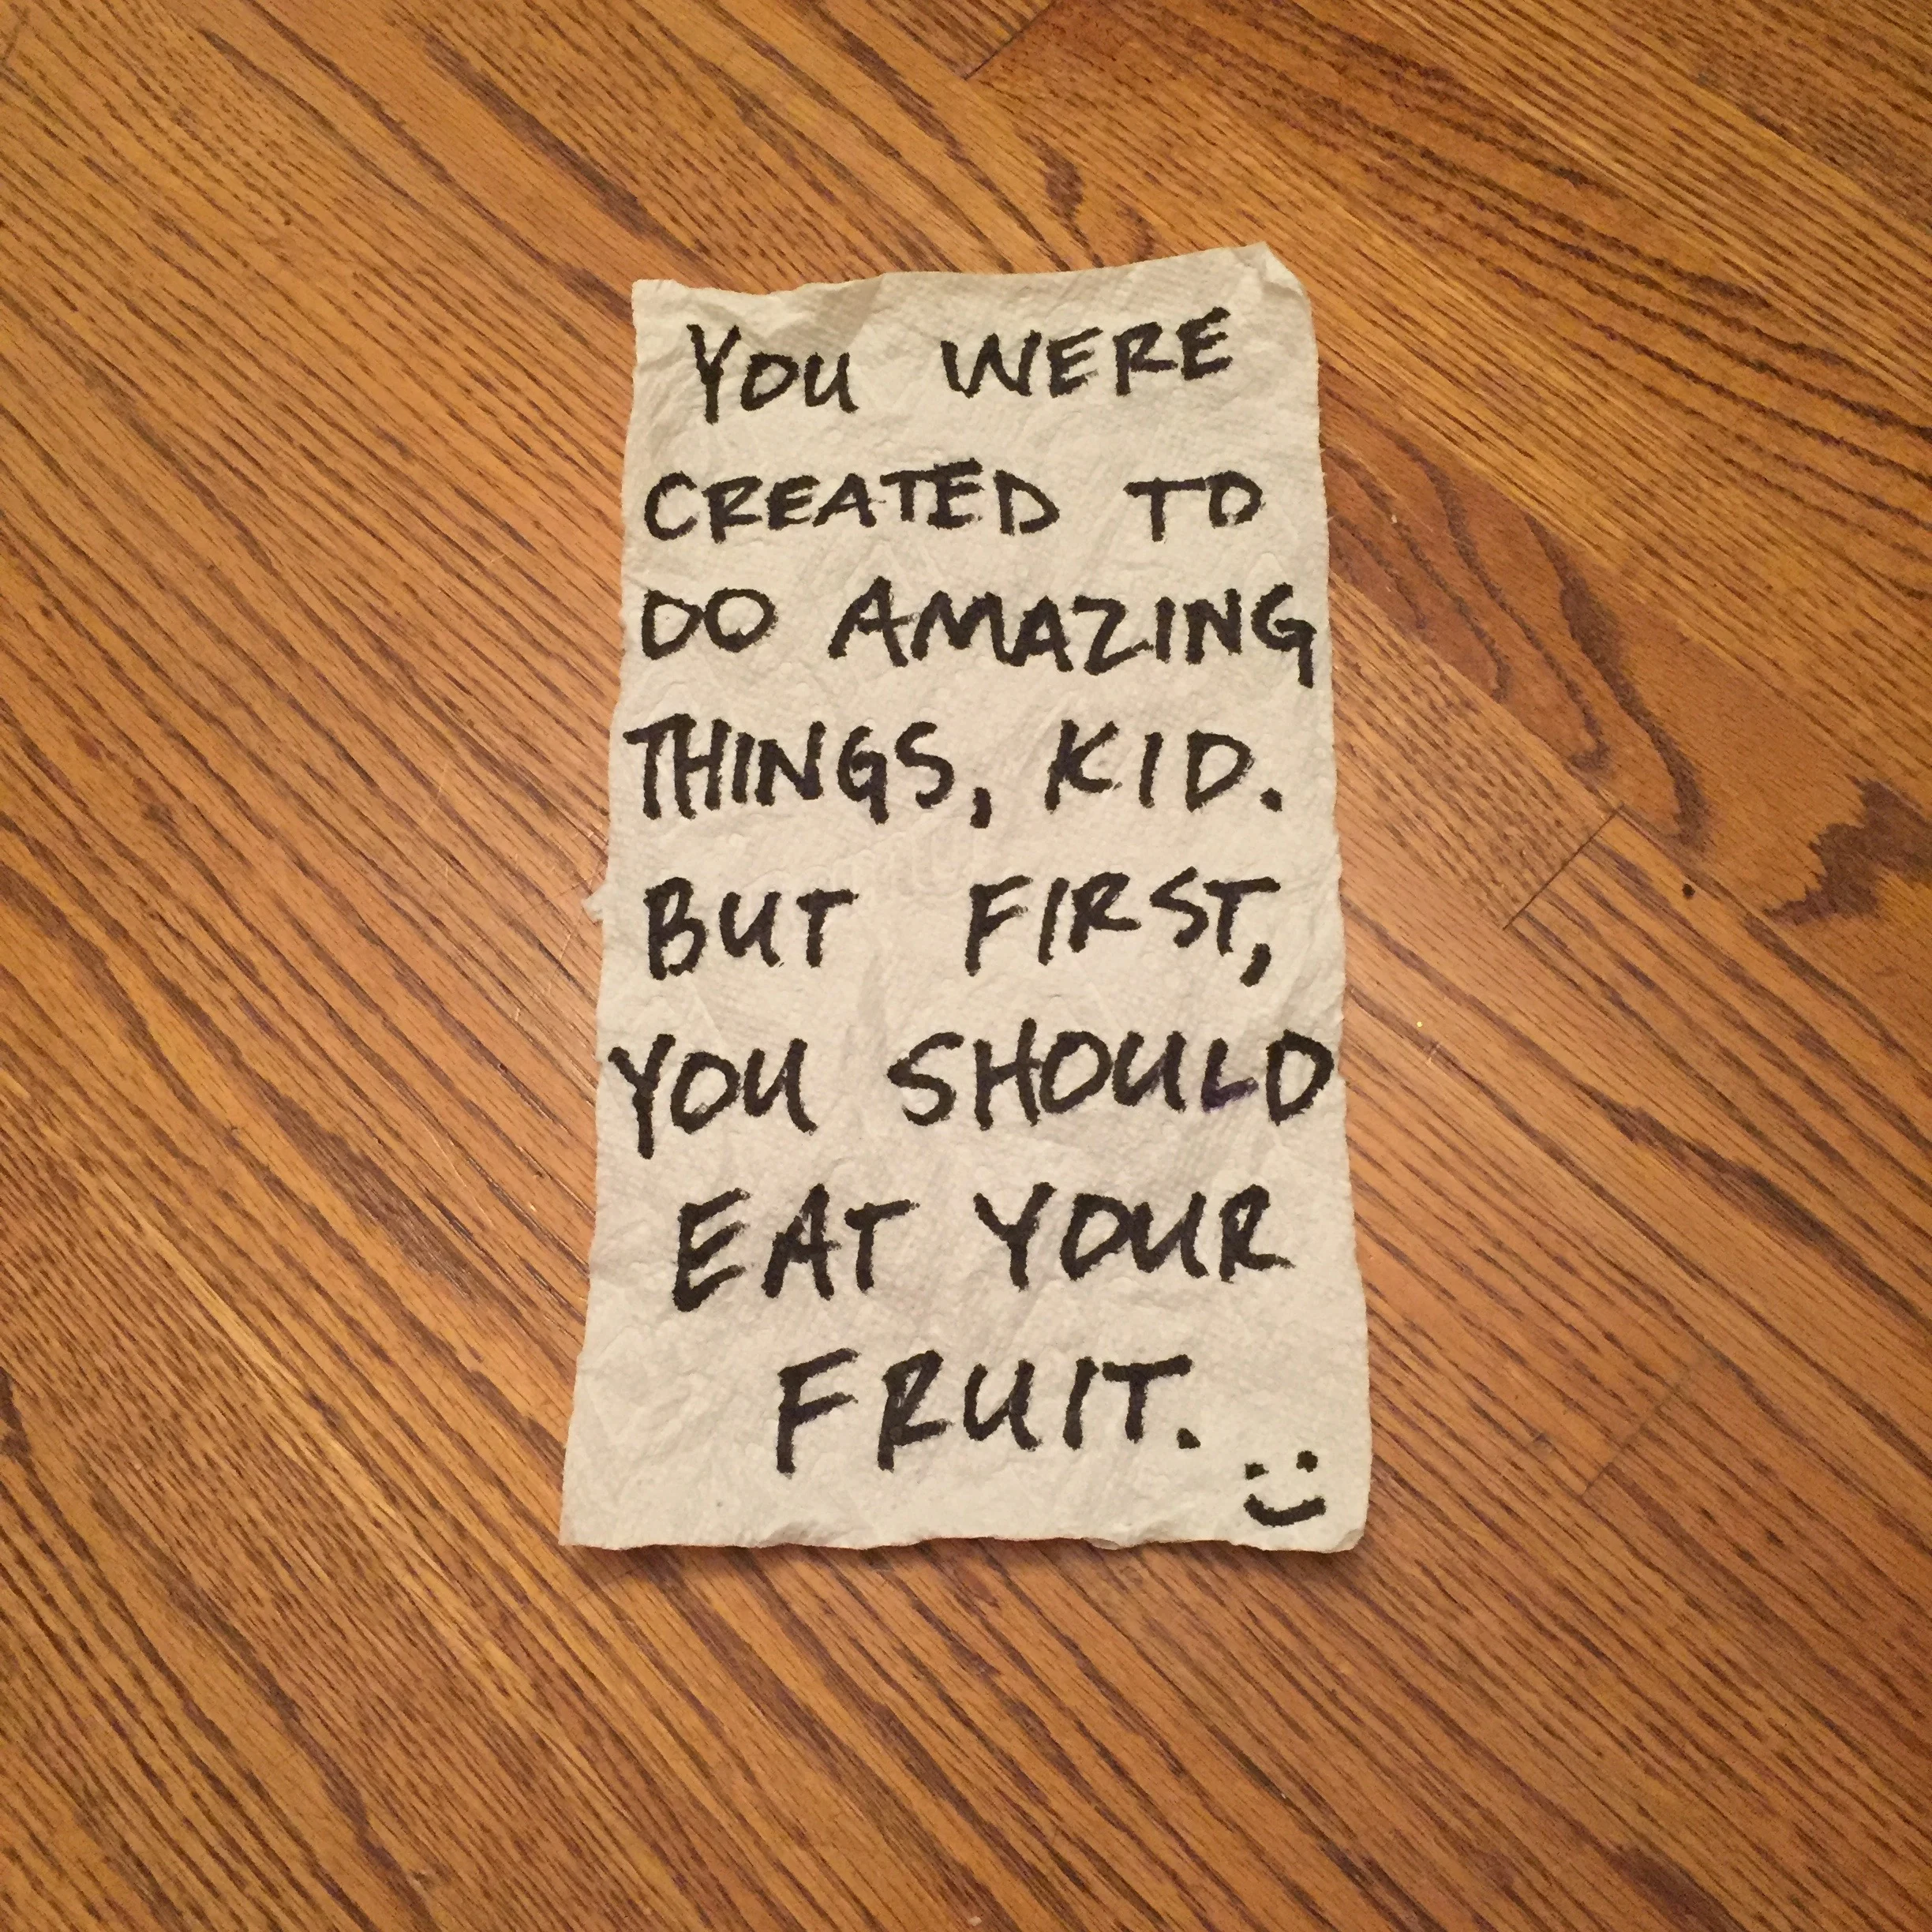 YOU WERE
CREATED TO
DO AMAZING
THINGS, KID.
BUT FIRST,
YOU SHOULD
EAT YOUR
FRUIT.